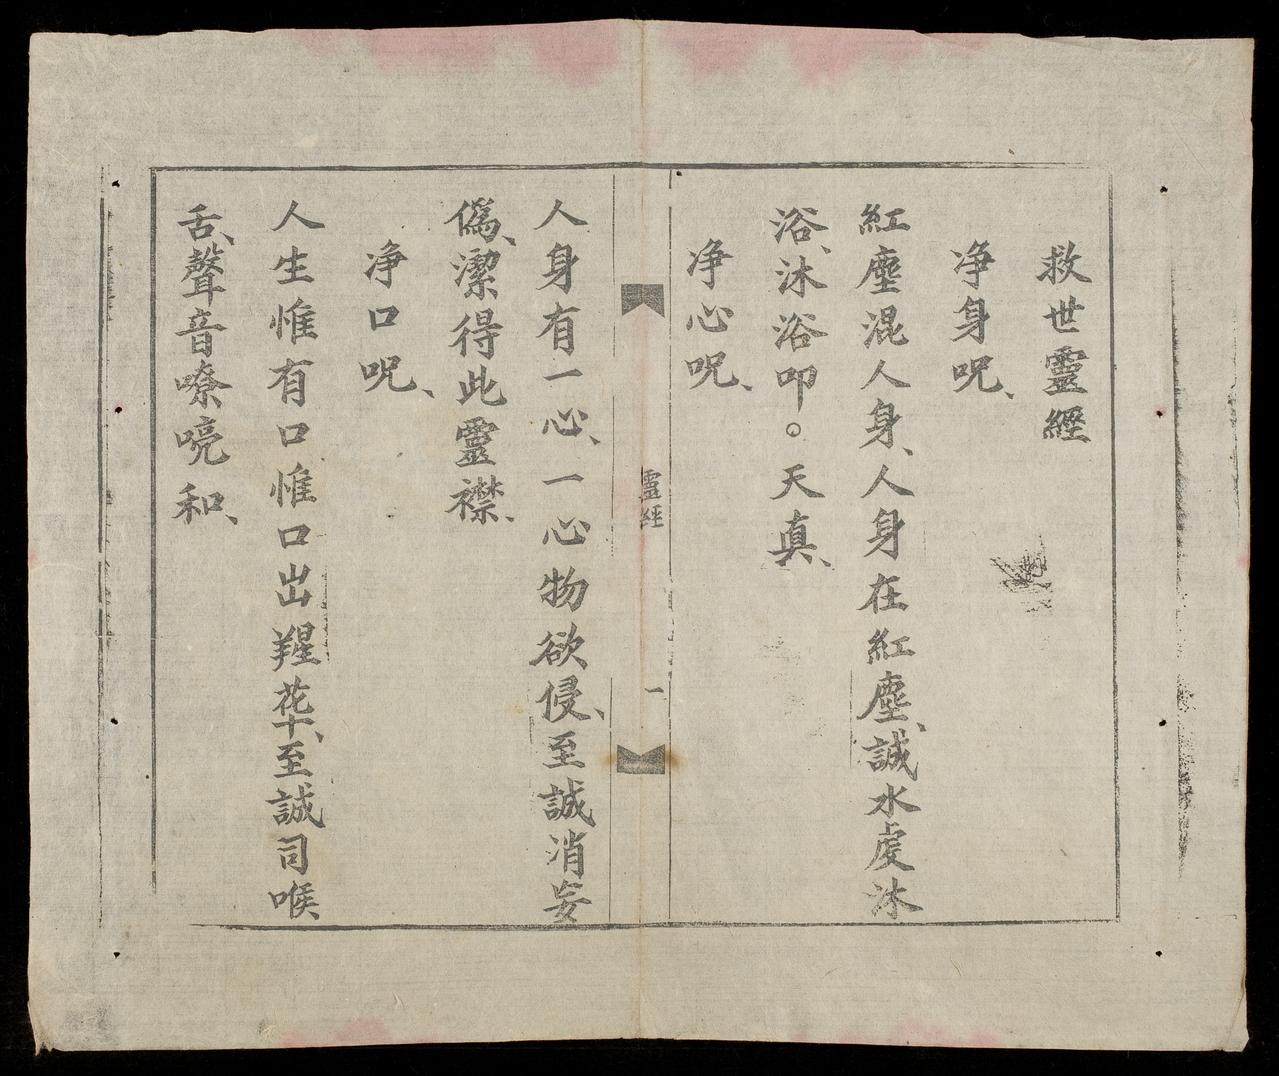 救世靈經
净身呪、
紅塵混人身、人身在紅塵、誠水虔沐
浴、沐浴叩。天真、
净心呪、
靈經
一
人身有一心、一心物欲侵、至誠消妄
偽、潔得此靈襟、
净口呪、
人生惟有口惟口出花十、至誠司喉
舌、聲音嘹喨和、